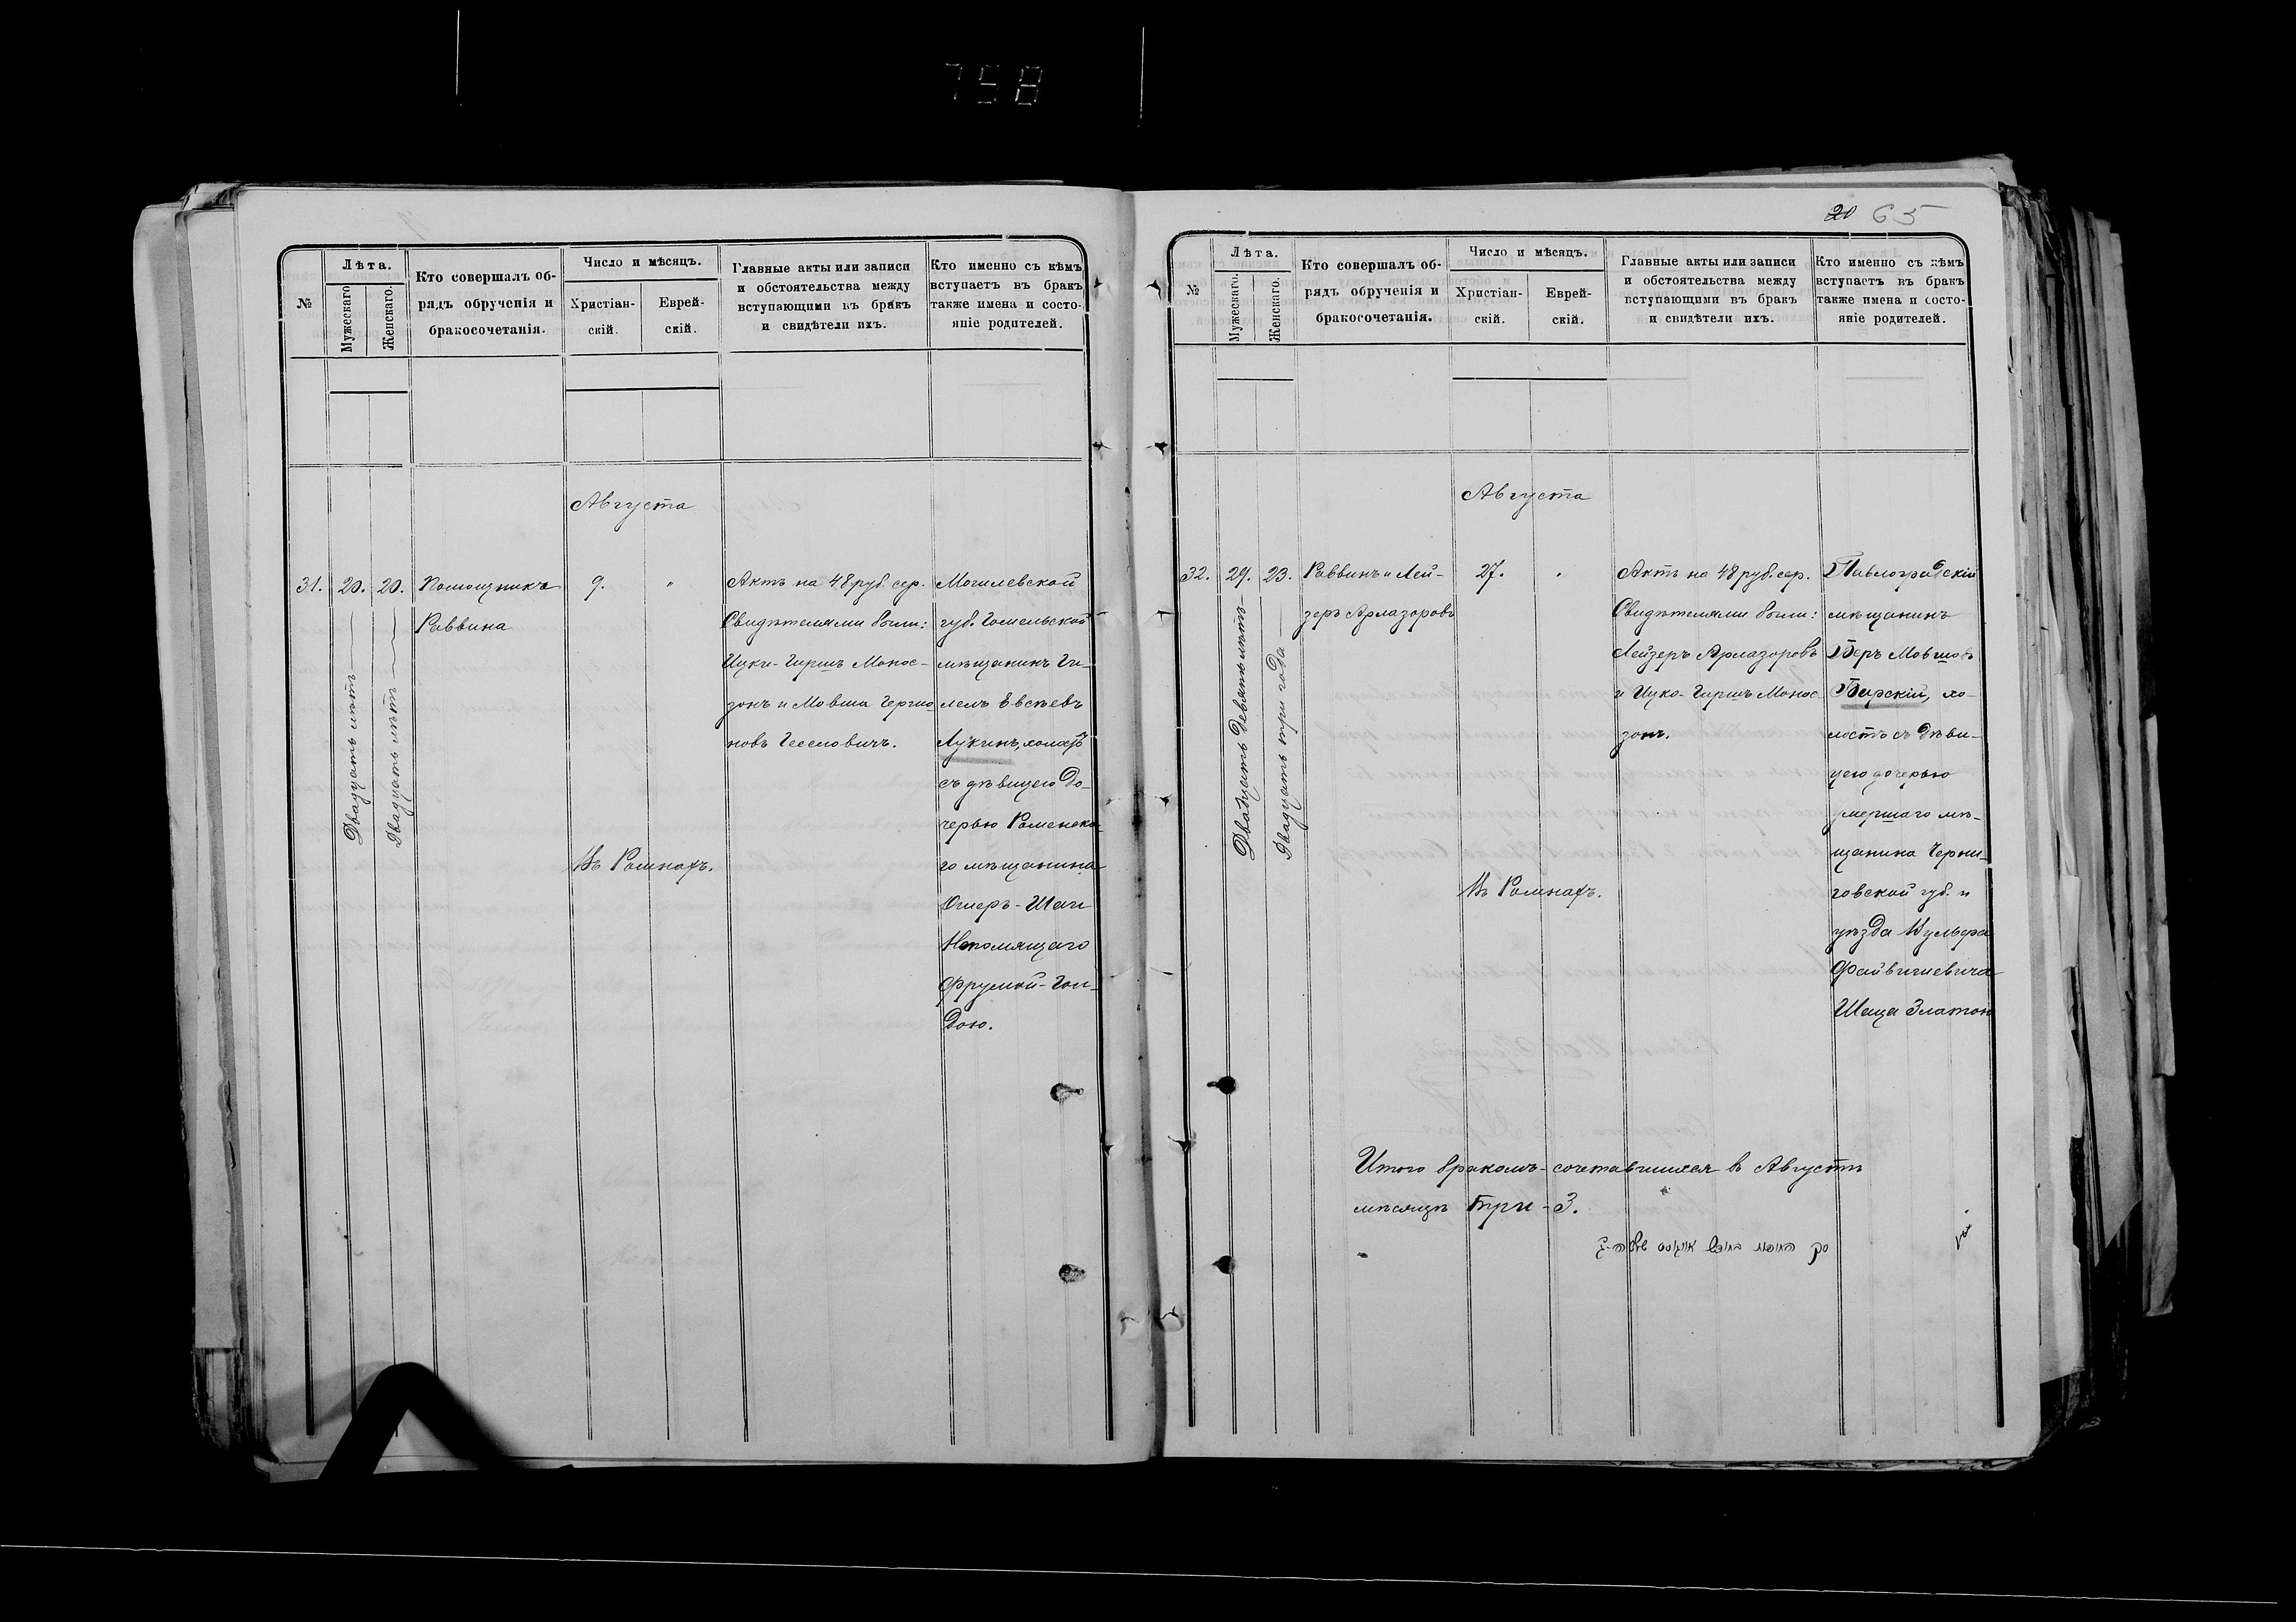 758
№
Лѣта.
Мужескаго.
Женскаго.
Кто совершалъ об-
рядъ обрученія и
бракосочетанія.
Число и мѣсяцъ.
Христіан-
скій.
Еврей-
скій.
Главные акты или записи
и обстоятельства между
вступающими въ бракъ
и свидѣтели ихъ.
Кто именно съ кѣмъ
вступаетъ въ бракъ
также имена и состо-
яніе родителей.
Августа
31.
20.
Двадцать лѣтъ
20.
Двадцать лѣтъ
Помощникъ
Раввина
9.
"
Въ Ромнахъ.
Актъ на 48 руб. сер.
Свидѣтелями были:
Ицки-Гиршъ Монос-
зонъ и Мовша
новъ
Могилевской
губ. Гомельской
мѣщанинъ Ги-
лелъ Евсѣевъ
Лукинъ, холостъ
съ дѣвицею до-
черью Роменска-
го мѣщанина
Ошеръ-
Непомящаго
Фрумой-Гол-
дою.
20 65
№
Лѣта.
Мужескаго.
Женскаго.
Кто совершалъ об-
рядъ обрученія и
бракосочетанія.
Число и мѣсяцъ.
Христіан-
скій.
Еврей-
скій.
Главные акты или записи
и обстоятельства между
вступающими въ бракъ
и свидѣтели ихъ.
Кто именно съ кѣмъ
вступаетъ въ бракъ
также имена и состо-
яніе родителей.
Августа
32.
29.
Двадцать девять лѣтъ
23.
Двадцать три года
Раввинъ и Лей-
зеръ Арлазоровъ
27.
"
Въ Ромнахъ.
Актъ на 48 руб. сер.
Свидѣтелями были:
Лейзеръ Арлазоровъ
и Ицко-Гиршъ Монос-
зонъ.
Павлоградскій
мѣщанинъ
Беръ Мовшовъ
Барскій, хо-
лостъ съ дѣви-
цею дочерью
умершаго мѣ-
щанина Черни-
говской губ. и
уѣзда Вульфа
Файвишевича
Златою
Итого бракомъ-сочетавшихся въ Августѣ
мѣсяцѣ три-3.